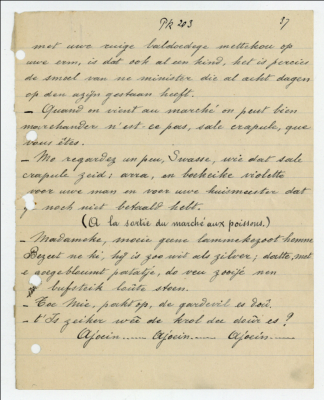 Pk 203
37
met uwe ruige baldoedege mettekou op
uwe erm, is dat ook al een kind, het is percies
de smoel van ne minister die al acht dagen
op den azijn gestaan heeft.
— Quand on vient au marché on peut bien
marchander n'est-ce pas, sale crapule, que
vous êtes.
— Mo regardez un peu, Swasse, wie dat sale
crapule zeid; arra, en bocheike violette
voor uwe man en voor uwe huismeester dat
g' noch niet betaald hebt.
(A la sortie du marché aux poissons.)
— Madameke, moeie geene lammekezoot hemme
Bezeet ne hi, hij is zoo wit als zilver; datte, met
e geblaumt patatje, do veu zooijé nen
bufsteik loete stoen.
— Toe Mie, pakt op, de gardevil es doë.
— t' Is zeiker wéé de krol deu deûr es?
Ajoein...... Ajoein...... Ajoein......